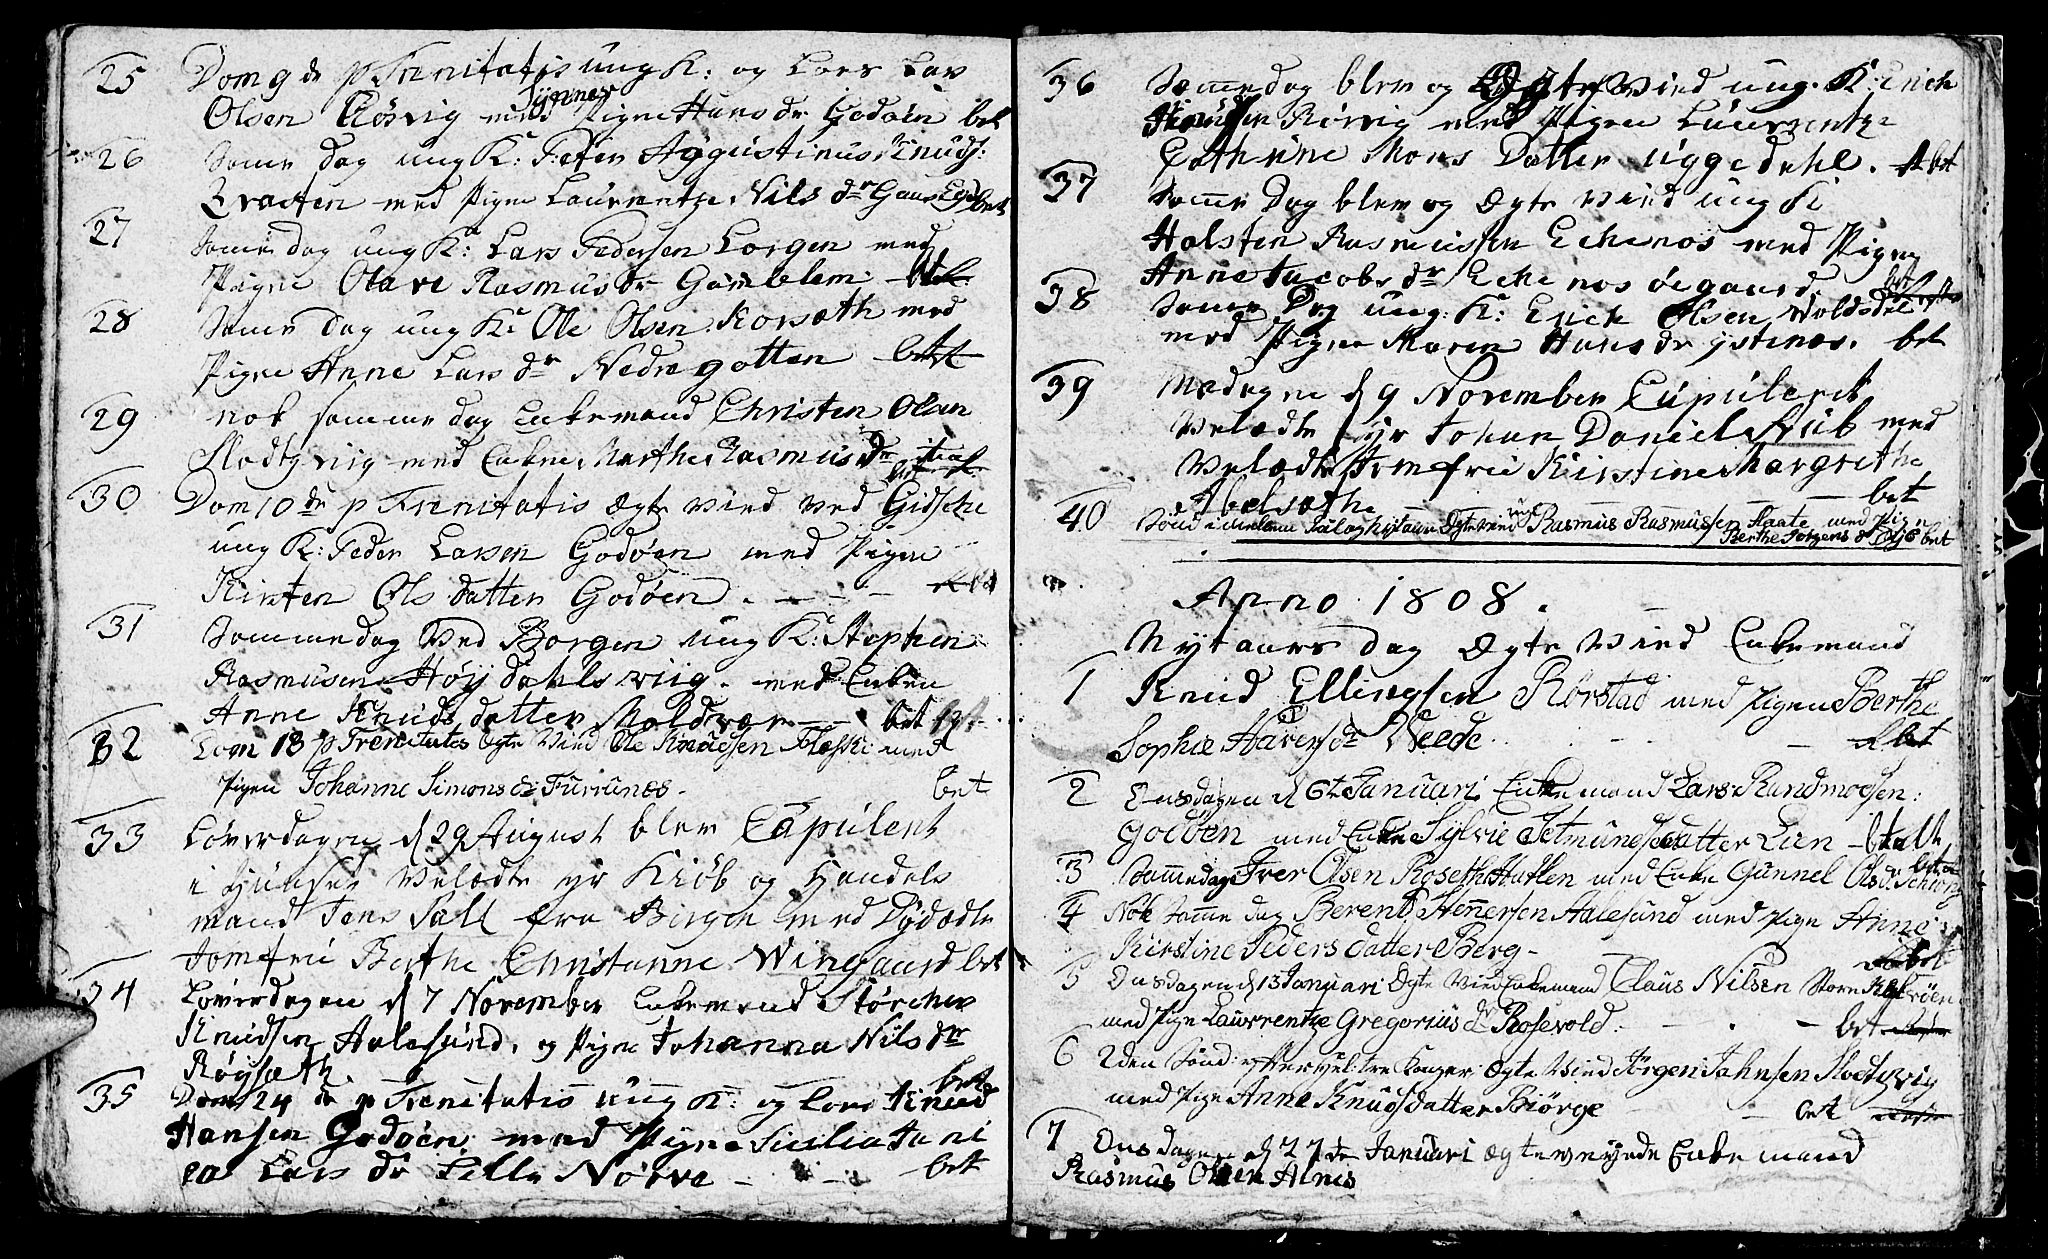 25 Dom 9 de p Trenitatis ung K: og Lors Lars
Olsen Røsvig med Pigne Synner Hans dr Godøen bet
26 Same dag ung K: Peter Aggustinus Knuds:
Brasten med Pigne Laurentze Nils dr Gaus bet
27 Same dag ung K: Lars Pedersen Lorgen med
Pigne Olave Rasmus dr Gamblem bet
28 Same dag ung K: Ole Olsen Korsæth med
Pigne Anne Lars dr Nedregotten bet
29 nok samme dag Enkemand Christen Olsen
Slodtzviig med Enken Marthe Rasmus dr
bet
30 Dom 10 de p Trenitatis Ægte vied ved Gidsche
ung K: Peder Larsen Godøen med Pigen
Kirsten Ols datter Godøen . — — —
31 Sammedag Ved Borgen ung K: Stephen
Rasmusen Høydahls viig . med Enken
Anne Knuds datter Moldvær — — bet
32 Dom 18 p Trenitates Ægte Vied Ole Knudsen med
Pigen Johanne Simons dr Furrunes . bet
33 Løverdagen d 29 August blev Capulent
i Hunset Velædte Hr Kiøb og Handels
mand Jens Fall fra Birgen med Dydædle
Jomfrue Berthe Christanne Wingaard bet
34 Løverdagen d 7 November Enkemand Størcher
Knudsen Aalesund, og Pigne Johanna Nils dr
Røysæth. bet
35 Dom 24 de p Trenitatis ung K: og Lors Knud
Hansen Godøen med Pigne Sicilia Jani
ca Lars dr Lille Nørve — — bet
36 Sammedag blev og Ægte Vied ung K: Erich
Knudsen Rissvig med Pigen Laurentze
Cathrine Mons Datter uggedahl . bet
37 Samme Dag blev og Ægte Vied ung K:
Holsten Rasmussen Echenos med Pigen
Anne Jacobs dr Echenos øegaard. bet
38 Same Dag ung: K: Erich Olsen Voldsdal
med Pigne Maren Hans dr ystenes. bet
39 Mandagen d 9 November Cupulerit
Velædte Hr Johan Daniel Stub med
Velædte Jomfrue Kirstine Margrethe
Abelsæth — — bet
40 Sønd: imelem Jul og Nytaar Ægte vied ung K Rasmus Rasmussen Slaate med Pigen
Berthe Jørgens dr bet
Anno 1808 .
Nytaars dag Ægte Vied Enkemand
1 Knud Ellingsen Rørstad med Pigen Berthe
Sophie dr Veede . — bet
2 Onsdagen d 6te Januari Enkemand Lars Randmodsen:
Godøen med Enke Sylvie Jetmundsdatter Lien — betalt
3 Sammedag Iver Olsen Roseth Hatlen med Enke Gunnel Olsdr bet
4 Nok Samme dag Berent Stennersen Aalesund med Pige Anne
Kirstine Peders datter Berg — bet
5 Onsdagen d 13 Januari Ægte Vied Enkemand Claus Nilsen Store
med Pige Lauvrentze Gregorius dr Rosevold . — bet
6 2den Sønd: efter hel: tre Konger Ægte Vied Jørgen Johnsen Slodtzviig
med Pige Anne Knudsdatter Biørge — bet
7 Onsdagen d 27 de Januari ægteveyede Enkemand
Rasmus Olsen Alnes